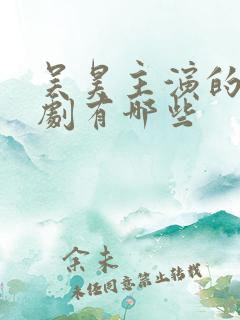 吴昊主演的
劇有哪些
余未
未经同意禁止转载